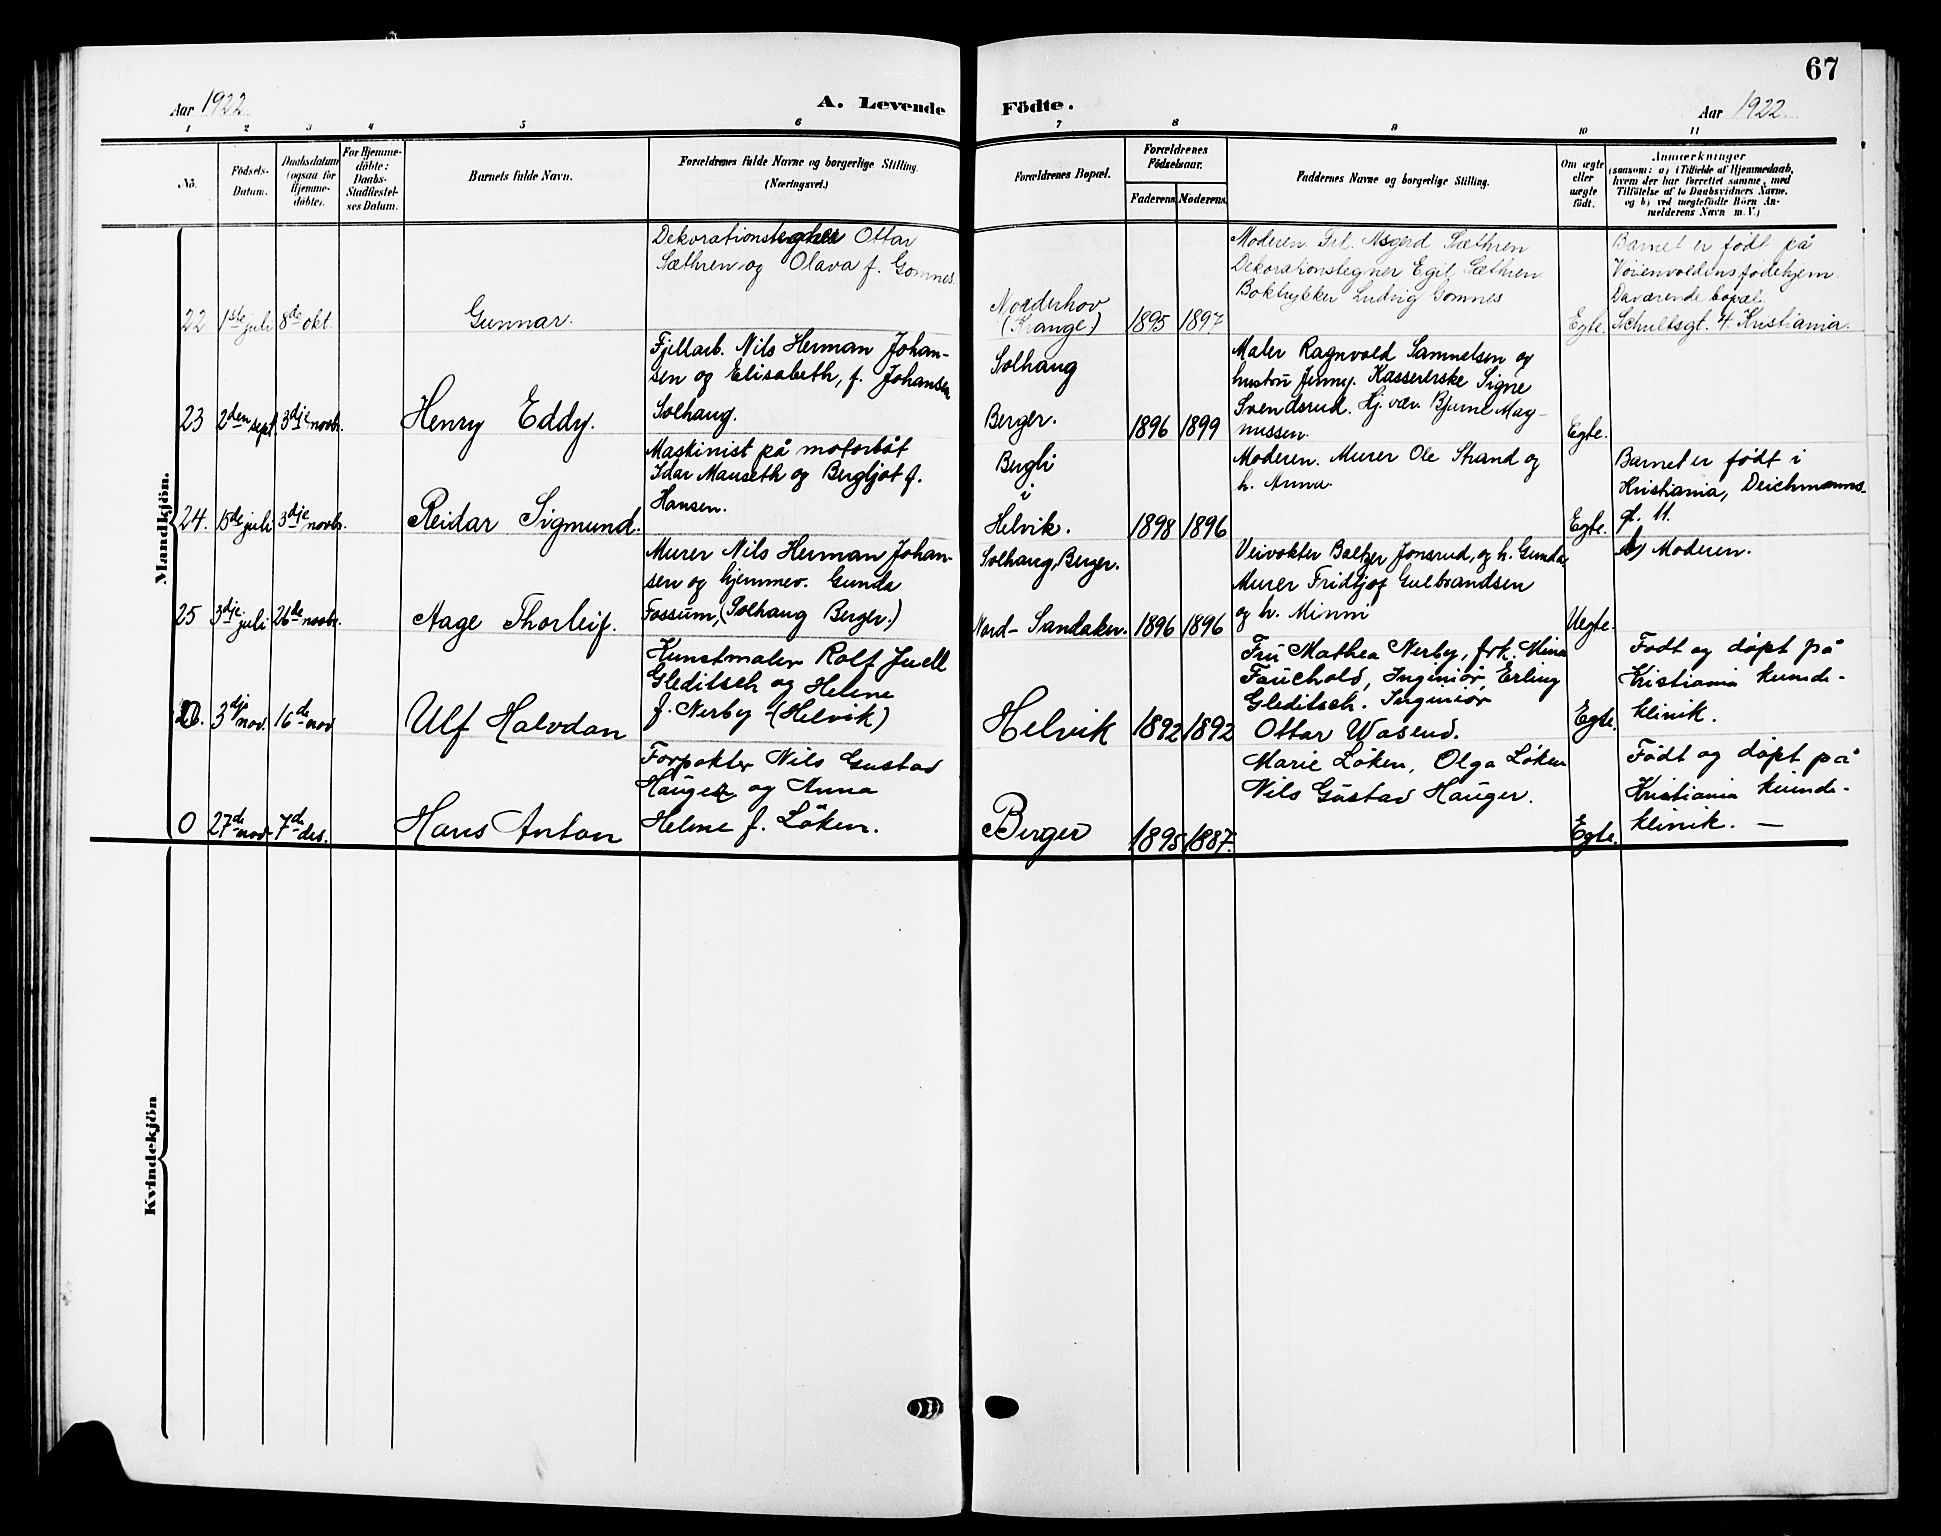 67
Aar 1922.
A. Levende Födte.
Aar 1922.
1 2 3 4 5 6 7 8 9 10 11
No.
Födsels-
Datum.
Daabsdatum
(ogsaa for
Hjemme-
döbte).
For Hjemme-
döbte:
Daabs-
Stadfæstel-
ses Datum.
Barnets fulde Navn.
Forældrenes fulde Navne og borgerlige Stilling
(Næringsvei.)
Forældrenes Bopæl.
Forældrenes
Födselsaar.
Faderens
Moderens
Faddernes Navne og borgerlige Stilling.
Om ægte
eller
uægte
födt.
Anmærkninger
(saasom: a) i Tilfælde af Hjemmedaab,
hvem der har forrettet samme, med
Tilföielse af to Daabsvidners Navne,
og b) ved uægtefödte Börn An-
melderens Navn m. V.)
Mandkjön.
22
1ste juli
8de okt.
Gunnar.
Dekorationstegner Ottar
Sæthren og Olava f. Gomnes.
Norderhov
(Krange)
1895
1897
Moderen. Frl. Asgerd Sæthren
Dekorationstegner Egil Sæthren
Boktrykker Ludvig Gomnes
Egte.
Barnet er født på
Vøienvoldens fødehjem.
Daværende bopæl
Schultsgt. 4 Kristiania.
23
2den sept.
3dje novbr.
Henry Eddy.
Fjellarb. Nils Herman Johan-
sen og Elisabeth, f. Johansen
Solhaug.
Solhaug
Berger.
1896
1899
Maler Ragnvald Samuelsen og
hustru Jenny. Kassererske Signe
Svendsrud. Hj. vær. Bjarne Mag-
nussen.
Egte.
24.
15de juli
3dje novbr.
Reidar Sigmund.
Maskinist på motorbåt
Idar Mauseth og Bergljot f.
Hansen.
Bergli
i
Helvik.
1898
1896
Moderen. Murer Ole Strand og
h. Anna.
Egte.
Barnet er født i
Kristiania, Deichmanns-
gt. 11.
25
3dje juli
26de novbr.
Aage Thorleif.
Murer Nils Herman Johan-
sen og hjemmev. Gunda
Fossum, (Solhaug Berger.)
Solhaug, Berger.
Nord-Sandaker.
1896
1896
Veivokter Baltzer Jonsrud, og h. Gunda
Murer Fridtjof Gulbrandsen
og h. Minni
Uegte.
b) Moderen.
0
3dje nov.
16de nov
Ulf Halvdan
Kunstmaler Rolf Juell
Gleditsch og Helene
f. Nerby (Helvik)
Helvik
1892
1892
Fru Mathea Nerby, frk. Mina
Fauchald, Ingeniør Erling
Gleditsch. Ingeniør
Ottar Wasend.
Egte.
Født og døpt på
Kristiania kvinde-
klinik.
0
27de nov.
7de des.
Hans Anton
Forpakter Nils Gustav
Hauger og Anna
Helene f. Løken.
Berger
1895
1887.
Marie Løken, Olga Løken
Nils Gustav Hauger.
Egte.
Født og døpt på
Kristiania kvinde-
klinik. —
Kvindekjön